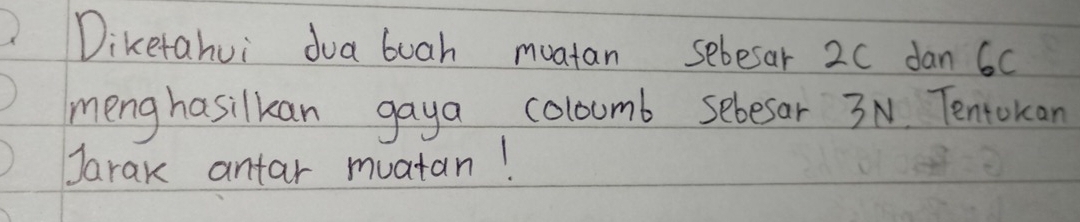 Diketahui dua buah muatan sebesar 2C dan 6C
menghasilkan gaya coloumb sebesar 3N. Tentukan
Jarak antar muatan !